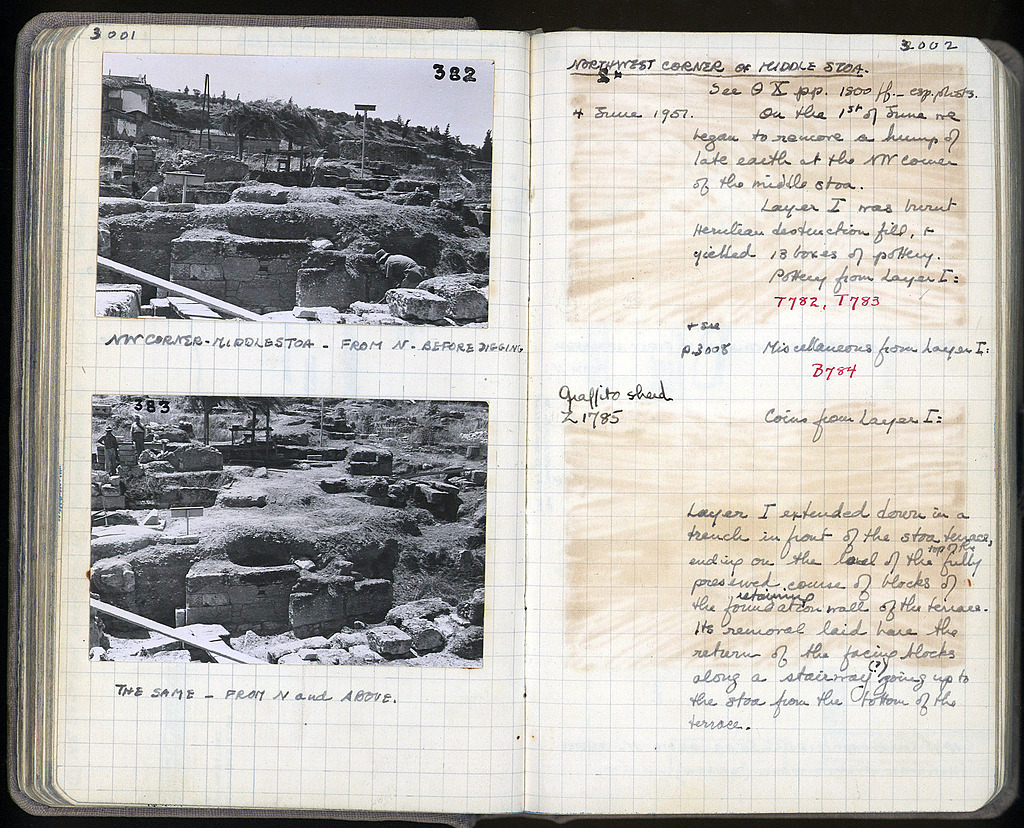 3001
382
NW CORNER - MIDDLE STOA - FROM N. - BEFORE DIGGING
383
THE SAME - FROM N and ABOVE.
3002
NORTHWEST CORNER OF MIDDLE STOA.
See Θ X pp. 1800 ff. - esp. photos.
4 June 1951. On the 1st of June we
began to remove a hump of
late earth at the NW corner
of the middle stoa.
Layer I was burnt
Herulian destruction fill, +
yielded 13 boxes of pottery.
Pottery from Layer I:
T782, T783
+ see
p. 3008 Miscellaneous from Layer I:
B784
Graffito sherd
Z1785 Coins from Layer I:
Layer I extended down in a
trench in front of the stoa terrace,
ending on the level of the top of the fully
preserved course of blocks of
the foundation retaining wall of the terrace.
Its removal laid bare the
return of the facing blocks
along a stairway (?) going up to
the stoa from the bottom of the
terrace.